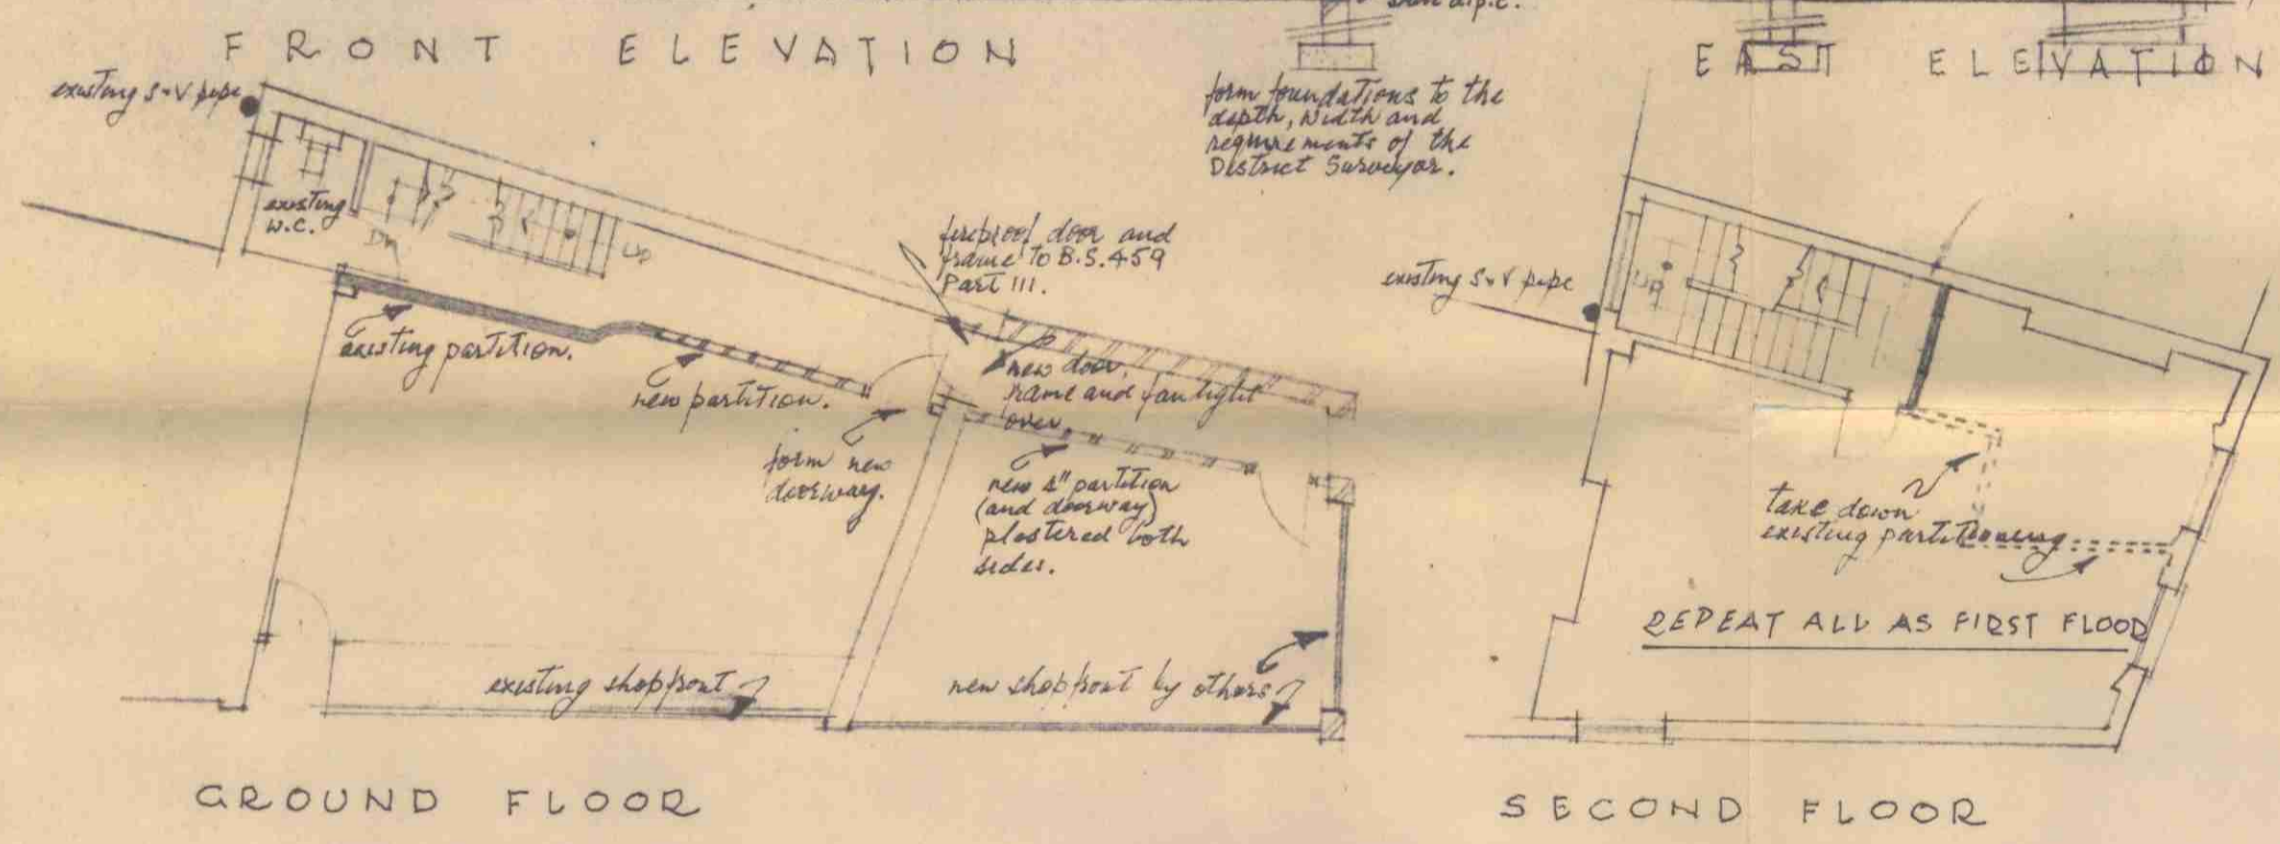 FRONT ELEVATION
d.p.c.
EAST ELEVATION
existing S+V pipe
form foundations to the
depth, width and
requirements of the
District Surveyor.
existing
W.C.
Dn
Up
fireproof door and
frame to B.S.459
Part III.
existing partition.
new partition.
new door,
frame and fanlight
over.
form new
doorway.
new 4" partition
(and doorway)
plastered both
sides.
existing shopfront
new shopfront by others
GROUND FLOOR
existing S+V pipe
Up
take down
existing partitioning
REPEAT ALL AS FIRST FLOOR
SECOND FLOOR